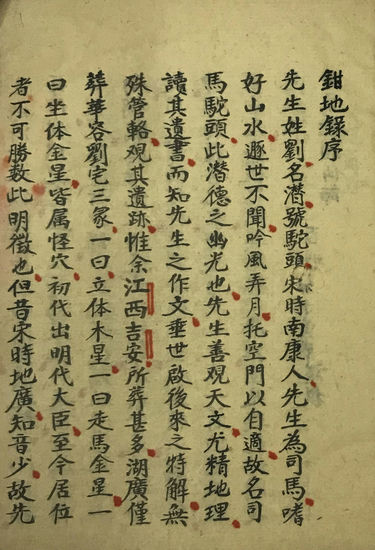 鉗地錄序
先生姓劉名潛號駝頭宋時南康人先生為司馬嗜
好山水遯世不聞吟風弄月托空門以自適故名司
馬駝頭此潛德之幽光也先生善观天文尤精地理
讀其遺書而知先生之作文垂世啟後來之特解無
殊管輅观其遺跡惟余江西吉安所葬甚多湖廣僅
葬華容劉宅三冢一曰立体木星一曰走馬金星一
曰坐体金星皆属怪穴初代出明代大臣至今居位
者不可勝数此明徵也但昔宋時地廣知音少故先